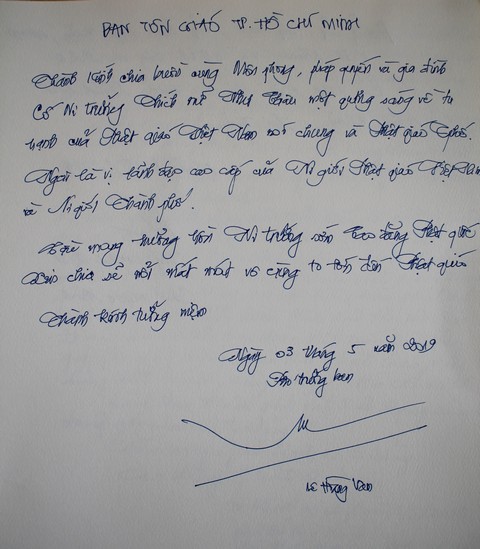 BAN TÔN GIÁO TP. HỒ CHÍ MINH
Thành kính chia buồn cùng Môn phong, pháp quyến và gia đình
Cố Ni trưởng Thích nữ Như Châu một gương sáng về tu
hạnh của Phật giáo Việt Nam nói chung và Phật giáo T.phố.
Ngài là vị lãnh đạo cao cấp của Ni giới Phật giáo Việt Nam
và Ni giới Thành phố.
Cầu mong hương hồn Ni trưởng sớm Cao đăng Phật quốc
Xin chia sẻ nỗi mất mát vô cùng to lớn đến Phật giáo
Thành kính tưởng niệm
Ngày 03 tháng 5 năm 2019
Phó trưởng ban
Lê Hoàng Vân